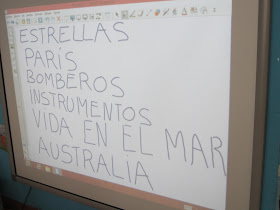 ESTRELLAS
PARÍS
BOMBEROS
INSTRUMENTOS
VIDA EN EL MAR
AUSTRALiA